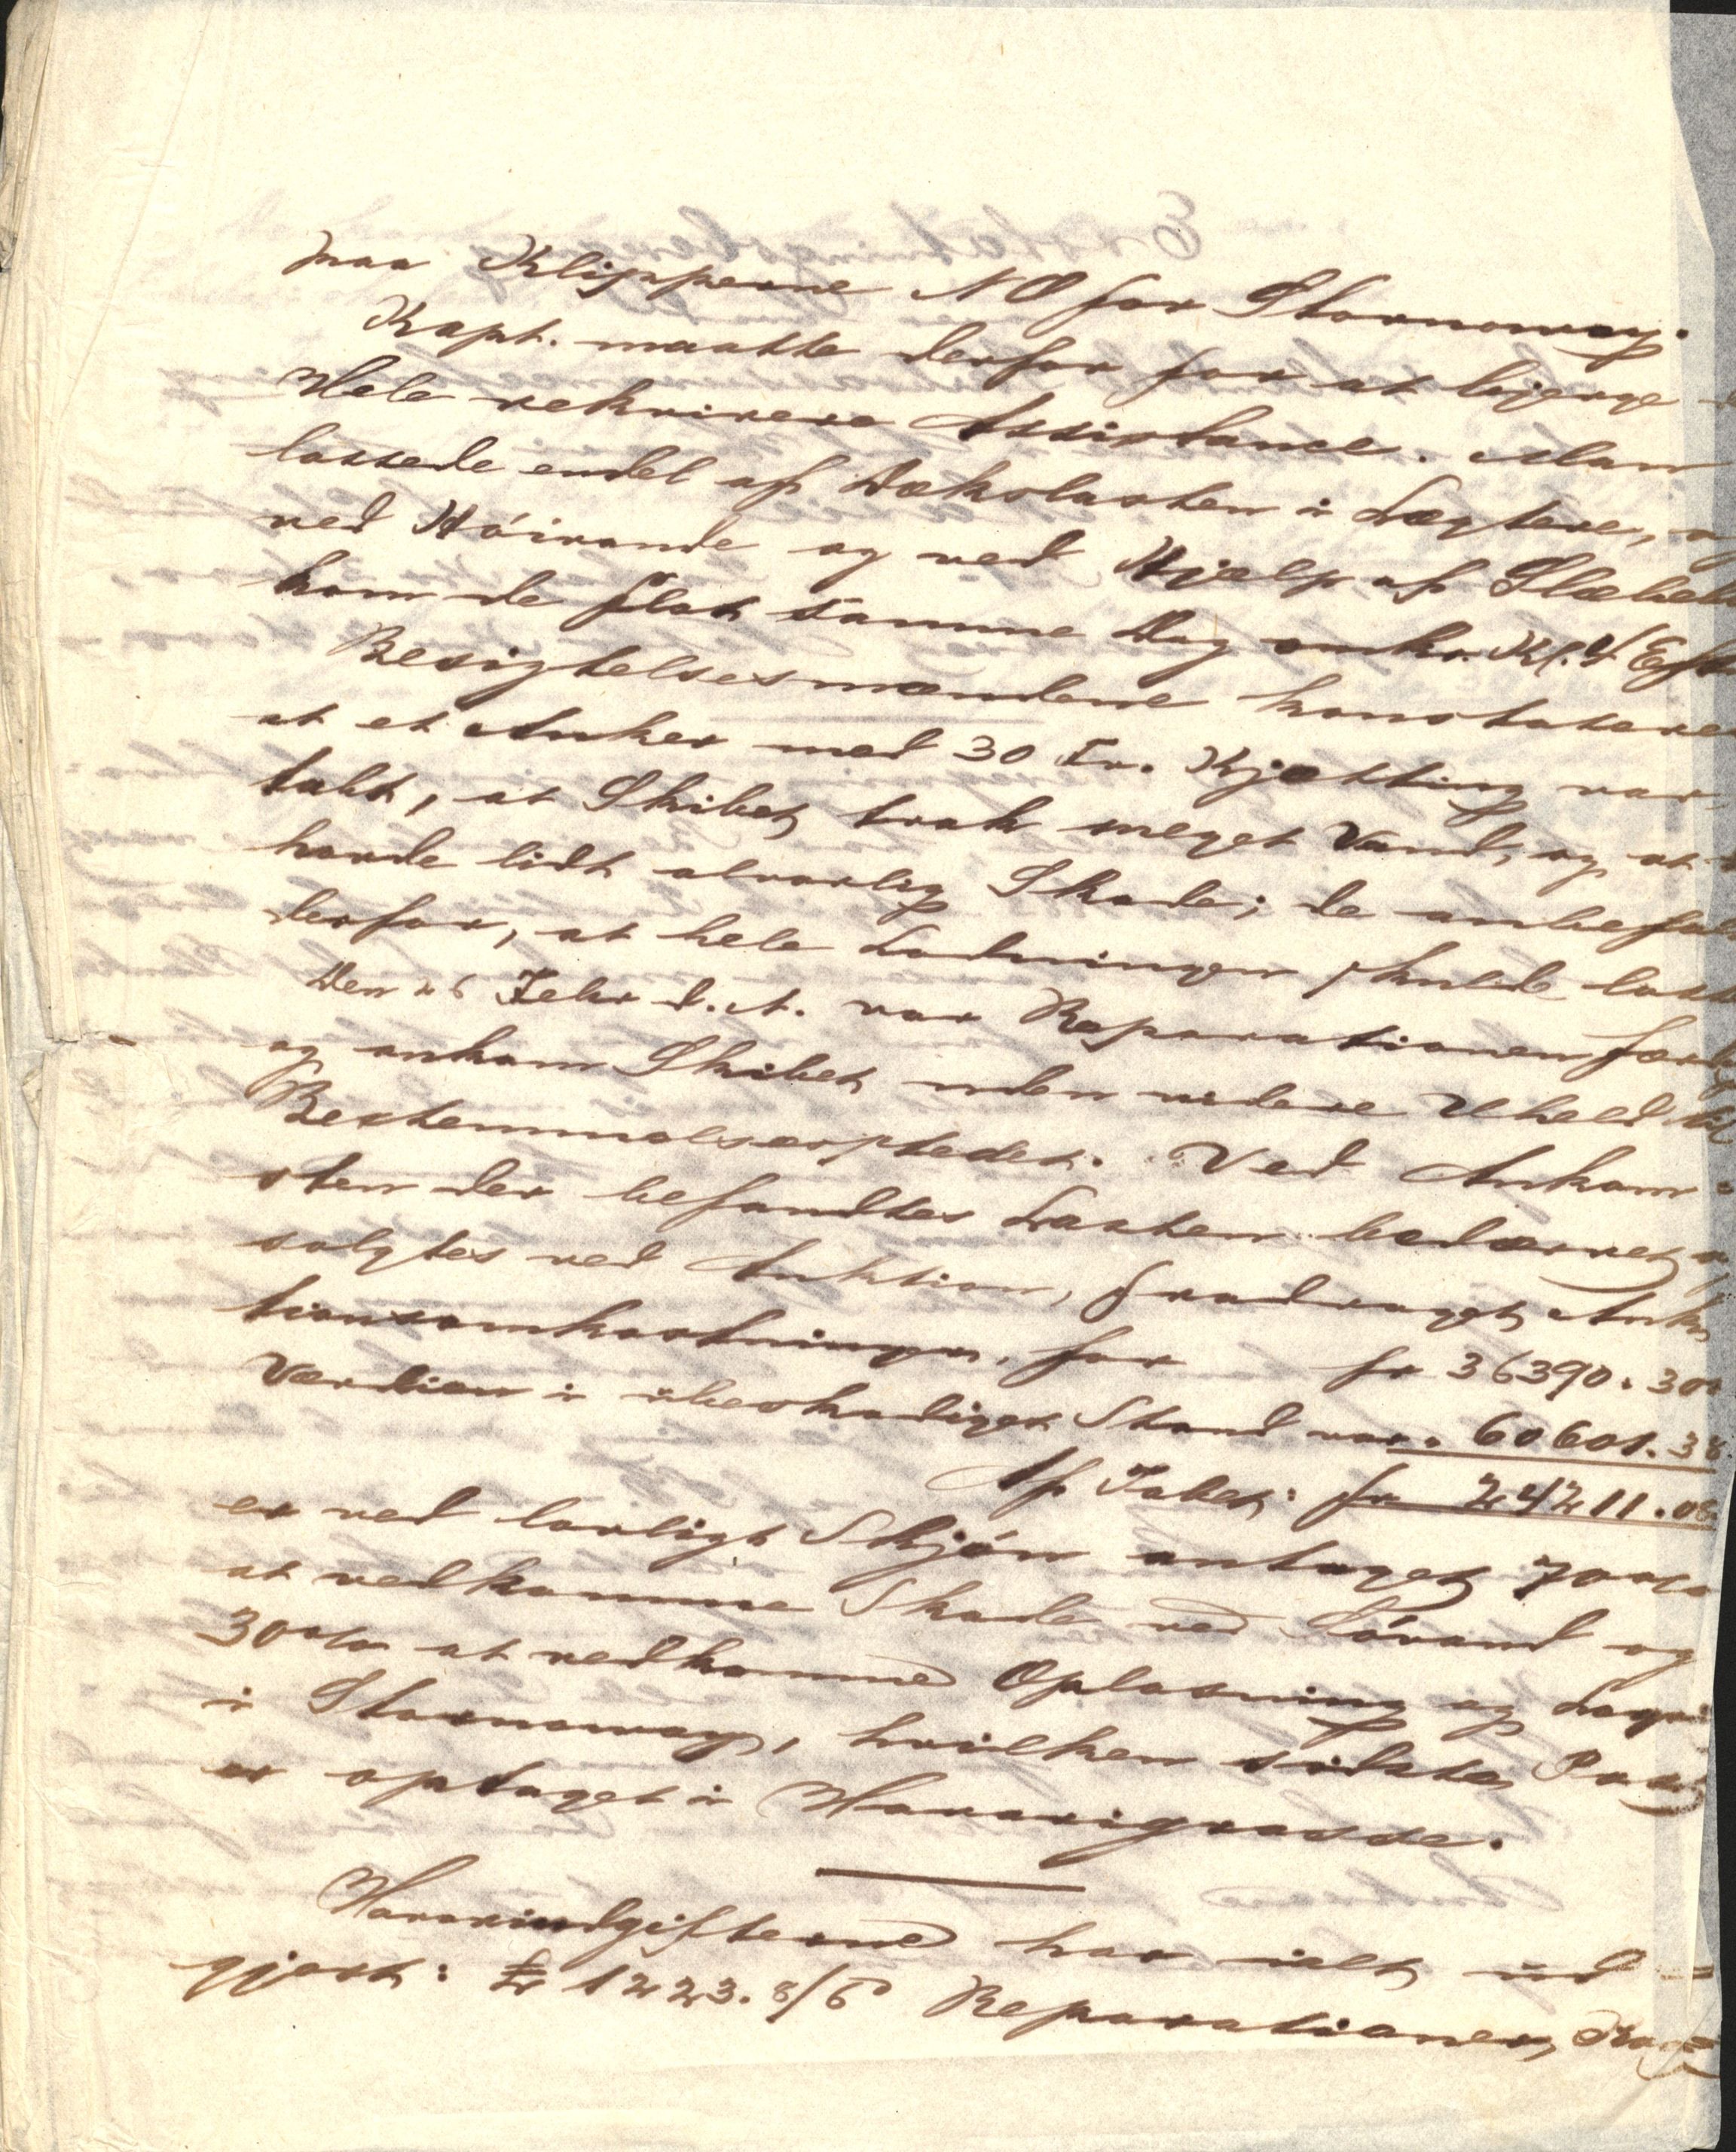 paa Klipperne NO for Stornoway.
Kapt. maatte derfor for at bjerge
Hele rekvirere Assistance. Man
lossede endel af Dækslasten i Lægtere, og
ved Höivande og ved Hjælp af Slæbe
kom de flot samme Dag omkr. Kl. 4 Eft
Besigtelsesmændene konstatere
at et Anker med 30 Fv. Kjætting var
tabt, at Skibet trak meget Vand, og at
havde lidt alvorlig Skade; de anbefal
derfor, at hele Ladningen skulde loss
Den 26 Febr d. A. var Reparationen færdig
og ankom Skibet uden videre Uheld til
Bestemmelsesstedet. Ved Ankom-
sten der befandtes Lasten bedærvet
solgtes ved Auktion, fradraget Auk
tionsomkostninger, for fr 36390.30
Værdien i ubeskadiget Stand var. 60601.38
Af Tabet: fr 24211.08
er ved lovligt Skjön antaget 70 %
at vedkomme Skade ved Sövand og
30 % at vedkomme Oplosning og Lagr
i Stornoway, hvilken sidste Post
er optaget i Havarigrosse.
Havariudgifterne har ialt ud-
gjort: £ 1223.8/6 Reparationer,